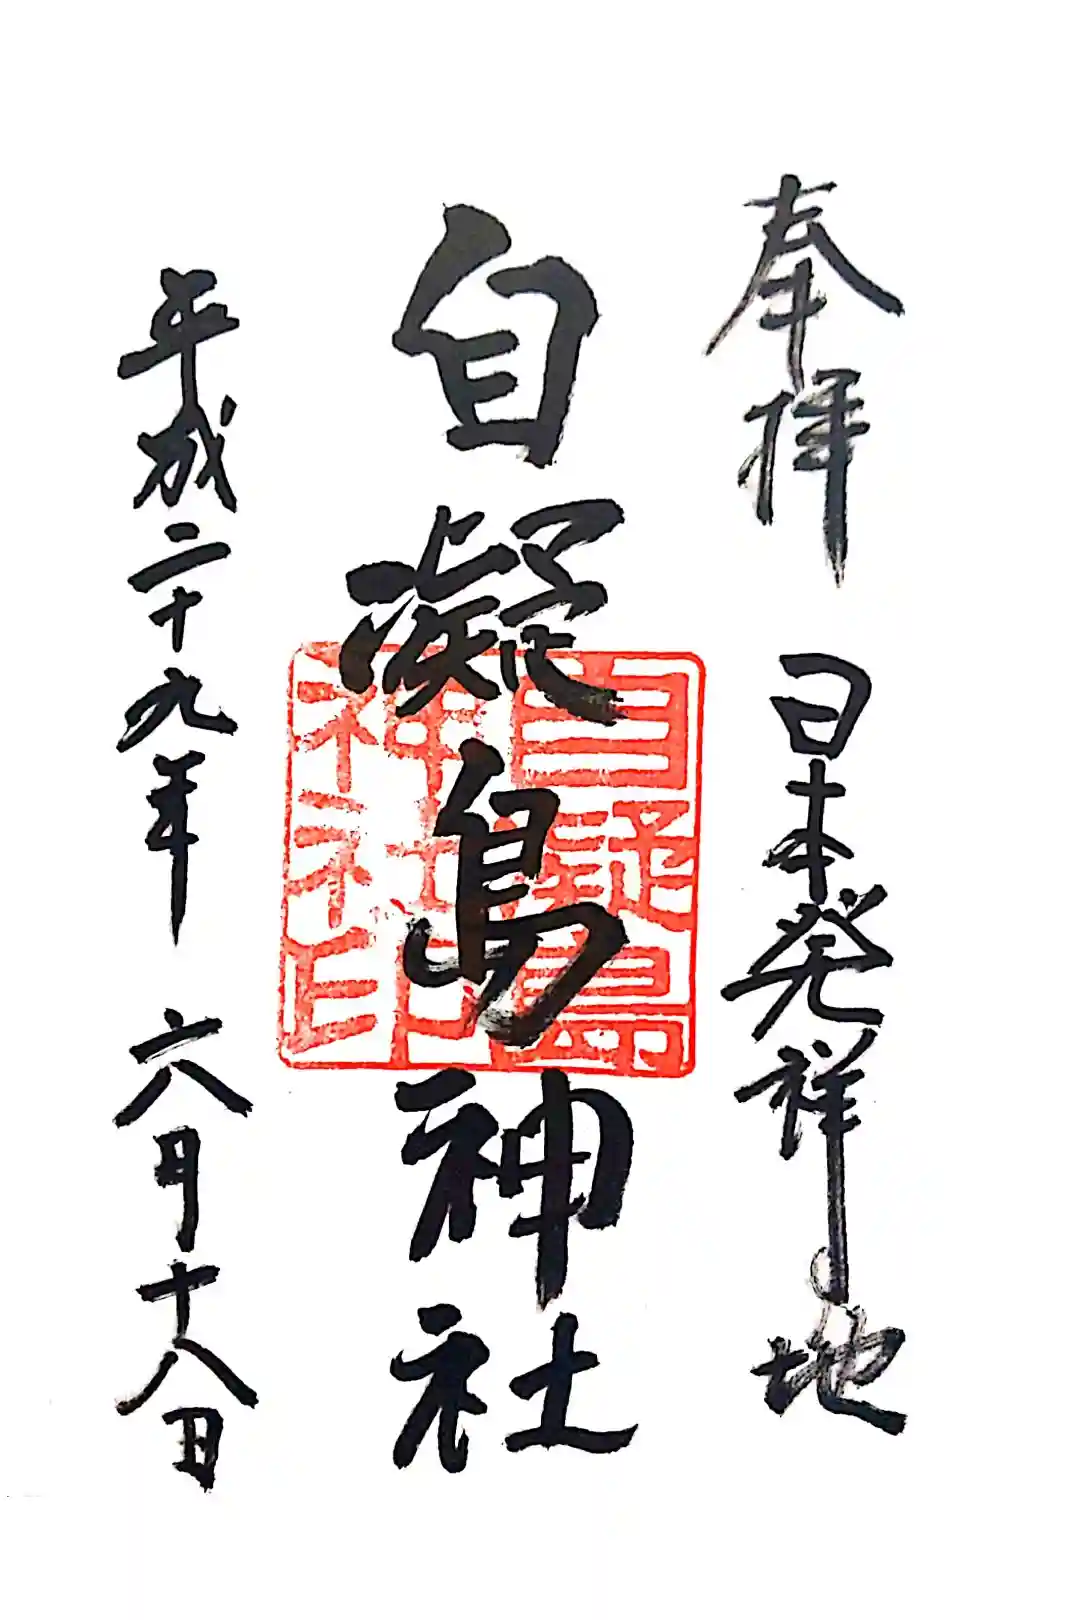 奉拝　日本発祥の地
自凝島神社
自凝島
神社印
平成二十九年　六月十八日